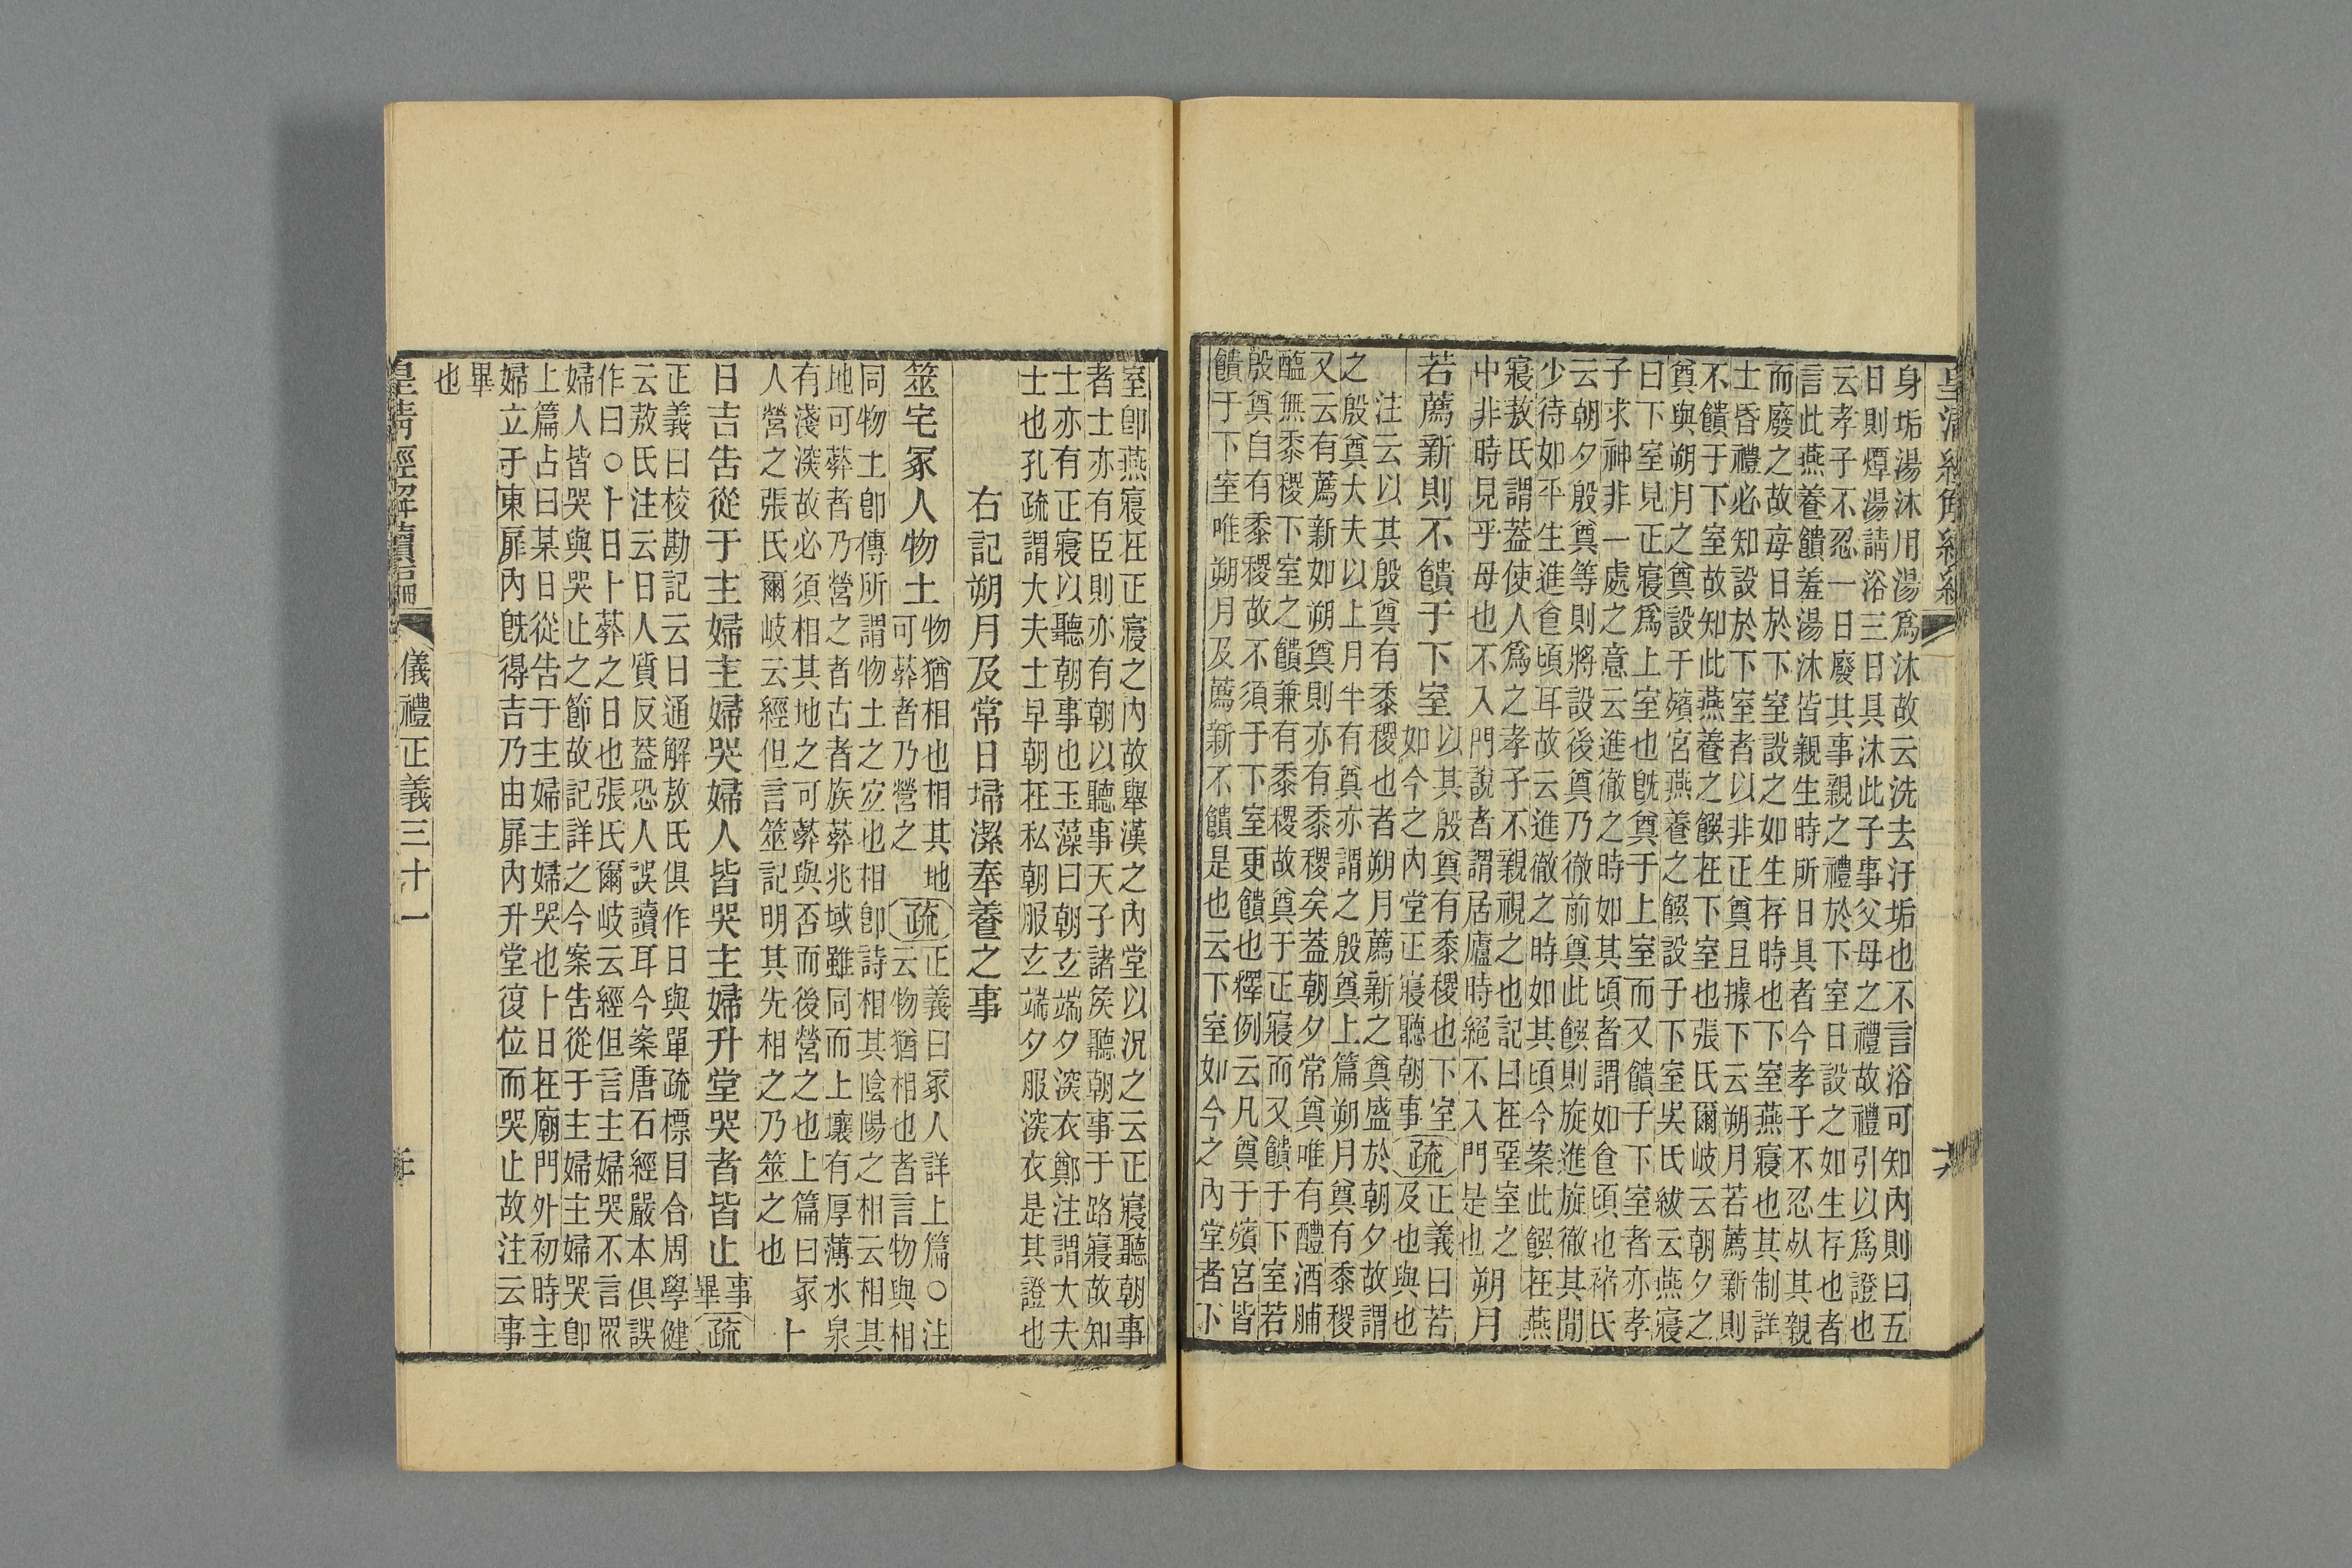 皇清經解續編
身垢湯沐用湯爲沐故云洗去汙垢也不言浴可知內則曰五
日則燂湯請浴三日具沐此子事父母之禮故禮引以爲證也
云孝子不忍一日廢其事親之禮於下室日設之如生存也者
言此燕養饋羞湯沐皆親生時所日具者今孝子不忍㱃其親
而廢之故每日於下室設之如生存時也下室燕寢也其制詳
士昏禮必知設於下室者以非正奠且據下云朔月若薦新則
不饋于下室故知此燕養之饌在下室也張氏爾岐云朝夕之
奠與朔月之奠設于殯宮燕養之饌設于下室吳氏紱云燕寢
曰下室見正寢爲上室也既奠于上室而又饋于下室者亦孝
子求神非一處之意云進徹之時如其頃者謂如食頃也褚氏
云朝夕殷奠等則將設後奠乃徹前奠此饌則旋進旋徹其閒
少待如平生進食頃耳故云進徹之時如其頃今案此饌在燕
寢敖氏謂葢使人爲之孝子不親視之也記曰在堊室之
中非時見乎母也不入門說者謂居廬時絕不入門是也 朔月
若薦新則不饋于下室 以其殷奠有黍稷也下室
如今之內堂正寢聽朝事 疏 正義曰若
及也與也
注云以其殷奠有黍稷也者朔月薦新之奠盛於朝夕故謂
之殷奠大夫以上月半有奠亦謂之殷奠上篇朔月奠有黍稷
又云有薦新如朔奠則亦有黍稷矣葢朝夕常奠唯有醴酒脯
醢無黍稷下室之饋兼有黍稷故奠于正寢而又饋于下室若
殷奠自有黍稷故不須于下室更饋也釋例云凡奠于殯宮皆
饋于下室唯朔月及薦新不饋是也云下室如今之內堂者下
室卽燕寢在正寢之內故舉漢之內堂以況之云正寢聽朝事
者士亦有臣則亦有朝以聽事天子諸矦聽朝事于路寢故知
士亦有正寢以聽朝事也玉藻曰朝玄端夕深衣鄭注謂大夫
士也孔疏謂大夫士早朝在私朝服玄端夕服深衣是其證也
右記朔月及常日埽潔奉養之事
筮宅冢人物土 物猶相也相其地
可葬者乃營之 疏 正義曰冢人詳上篇○注
云物猶相也者言物與相
同物土卽傳所謂物土之宐也相卽詩相其陰陽之相云相其
地可葬者乃營之者古者族葬兆域雖同而上壤有厚薄水泉
有淺深故必須相其地之可葬與否而後營之也上篇曰冢
人營之張氏爾岐云經但言筮記明其先相之乃筮之也 卜
日吉告從于主婦主婦哭婦人皆哭主婦升堂哭者皆止 事
畢 疏
正義曰校勘記云日通解敖氏俱作日與單疏標目合周學健
云敖氏注云日人質反葢恐人誤讀耳今案唐石經嚴本俱誤
作曰○卜日卜葬之日也張氏爾岐云經但言主婦哭不言眾
婦人皆哭與哭止之節故記詳之今案告從于主婦主婦哭卽
上篇占曰某日從告于主婦主婦哭也卜日在廟門外初時主
婦立于東扉內既得吉乃由扉內升堂復位而哭止故注云事
畢
也
皇清經解續編
儀禮正義三十一